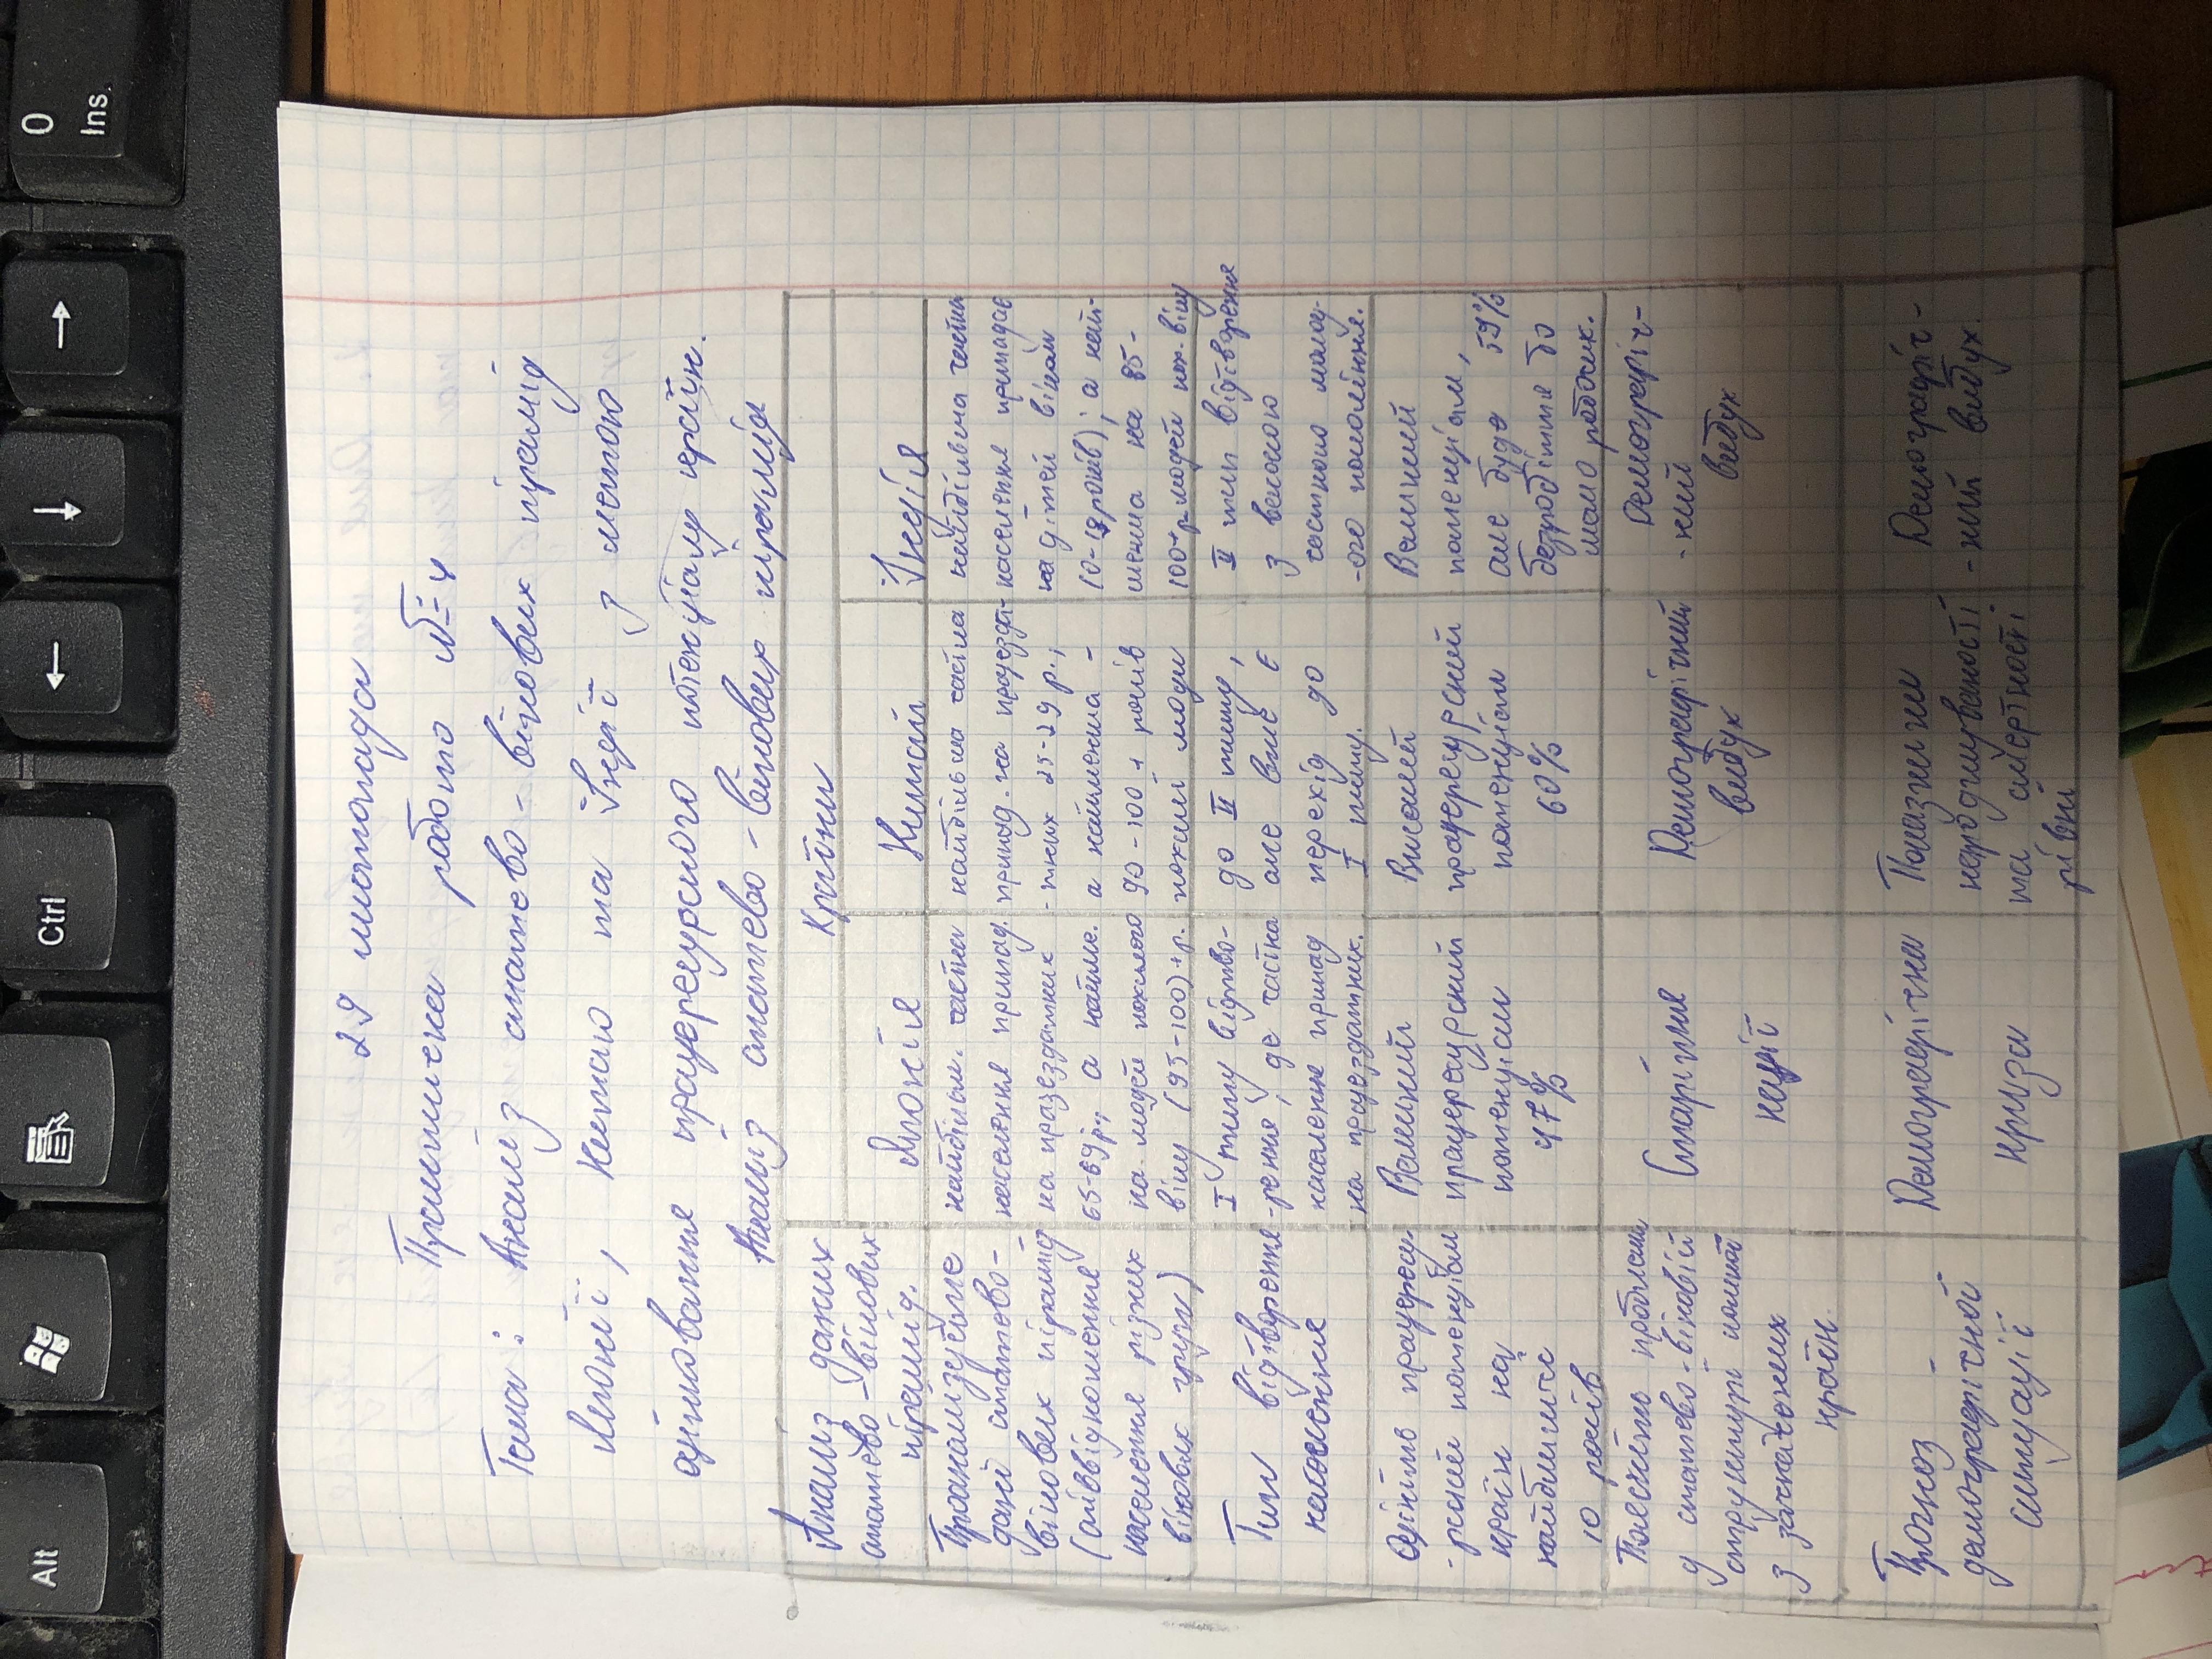 29 листопада
Практична робота №4
Тема: Аналіз статево-вікових пірамід
Японії, Китаю та Індії з метою
оцінювання працересурсного потенціалу країн.
Аналіз статево-вікових пірамід
Аналіз даних
статево-вікових
пірамід.
Країни
Японія
Китай
Індія
Проаналізуйте
дані статево-
вікових пірамід
(співвідношення
населення різних
вікових груп)
найбільш. частка
населення припад.
на празездатних
65-69 р., а наймн.
на людей похилого
віку (95-100)+р.
найбільша частка
припад. на працездат-
-тних 25-29 р.,
а найменша -
90-100+ років
похилі люди
найбільша частка
населення припадає
на дітей віком
(0-14 років); а най-
менша на 85-
100+р людей пох. віку
Тип відтворення
населення
I типу відтво-
-рення, де частка
населення припад
на працездатних.
до II типу,
але вже є
перехід до
I типу.
II тип відтворення
з високою
часткою молод-
-ого покоління.
Оцініть працересу-
-рсний потенціал
країн на
найближчє
10 років
Великий
працересурсний
потенціал
47%
Високий
працересурсний
потенціал
60%
Великий
потенціал,
але буде 59%
безробіття бо
мало робочих.
Поясніть проблеми
у статево-віковій
структурі кожної
з зазначених
країн.
Старіння
нації
Демографічний
вибух
Демографіч-
-ний
вибух
Прогноз
демографічної
ситуації
Демографічна
криза
Показники
народжуваності
та смертності
рівні
Демографіч-
-ний вибух.
Alt
Ctrl
0
Ins